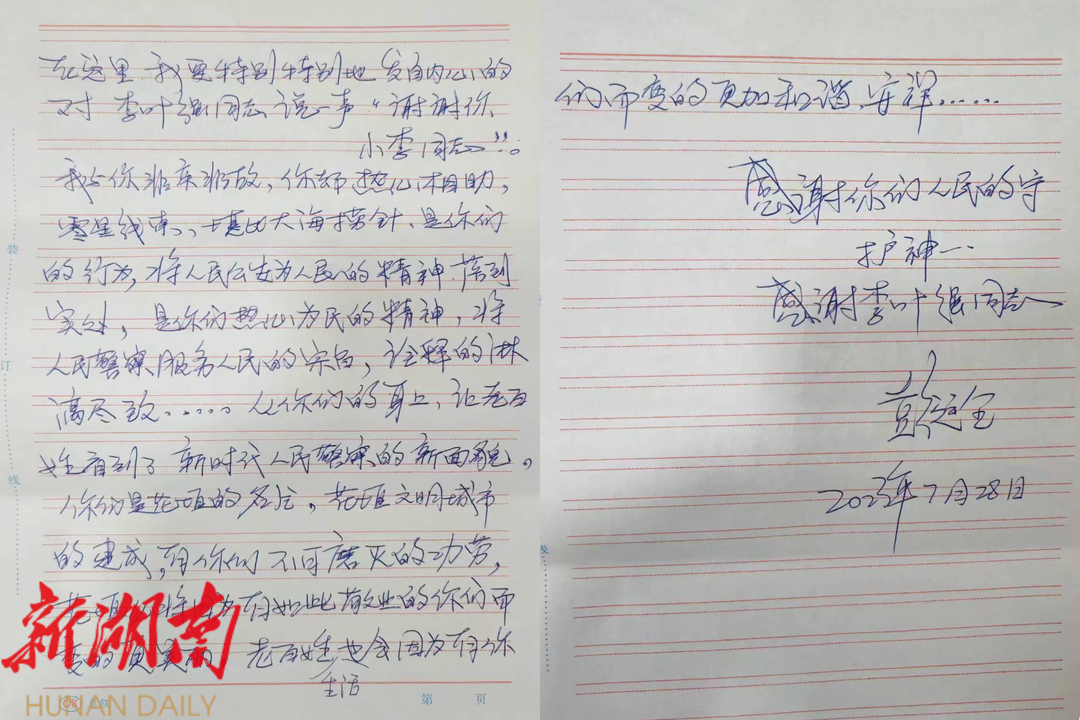 在这里,我要特别特别地发自内心的
对李叶强同志说一声“谢谢你,
小李同志”。
我与你非亲非故,你却热心相助,
零星线索、堪比大海捞针、是你们
的行为,将人民公安为人民的精神落到
实处,是你们热心为民的精神,将
人民警察服务人民的宗旨,诠释的淋
漓尽致......从你们的身上,让老百
姓看到了新时代人民警察的新面貌。
你们是花垣的名片,花垣文明城市
的建成,有你们不可磨灭的功劳,
花垣将因为有如此敬业的你们而
变的更美丽 老百姓也会因为有你
生活
第 页
装
订
线
新湖南
HUNAN DAILY
们而变的更加和谐,安祥......
感谢你们人民的守
护神..
感谢李叶强同志
2023年7月28日